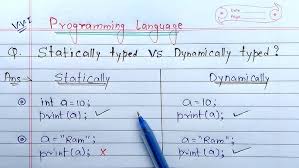 VV.I Programming Language
Date
Page
Q. Statically typed vs Dynamically typed?
Ans → Statically Dynamically
int a=10; a=10;
print(a); ✓ print(a); ✓
a="Ram"; a="Ram";
print(a); ✗ print(a); ✓